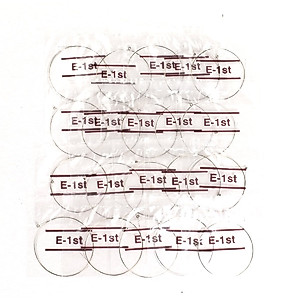 E-1st E-1st E-1st E-1st E-1st
E-1st E-1st E-1st E-1st E-1st
E-1st E-1st E-1st E-1st E-1st
E-1st E-1st E-1st E-1st E-1st